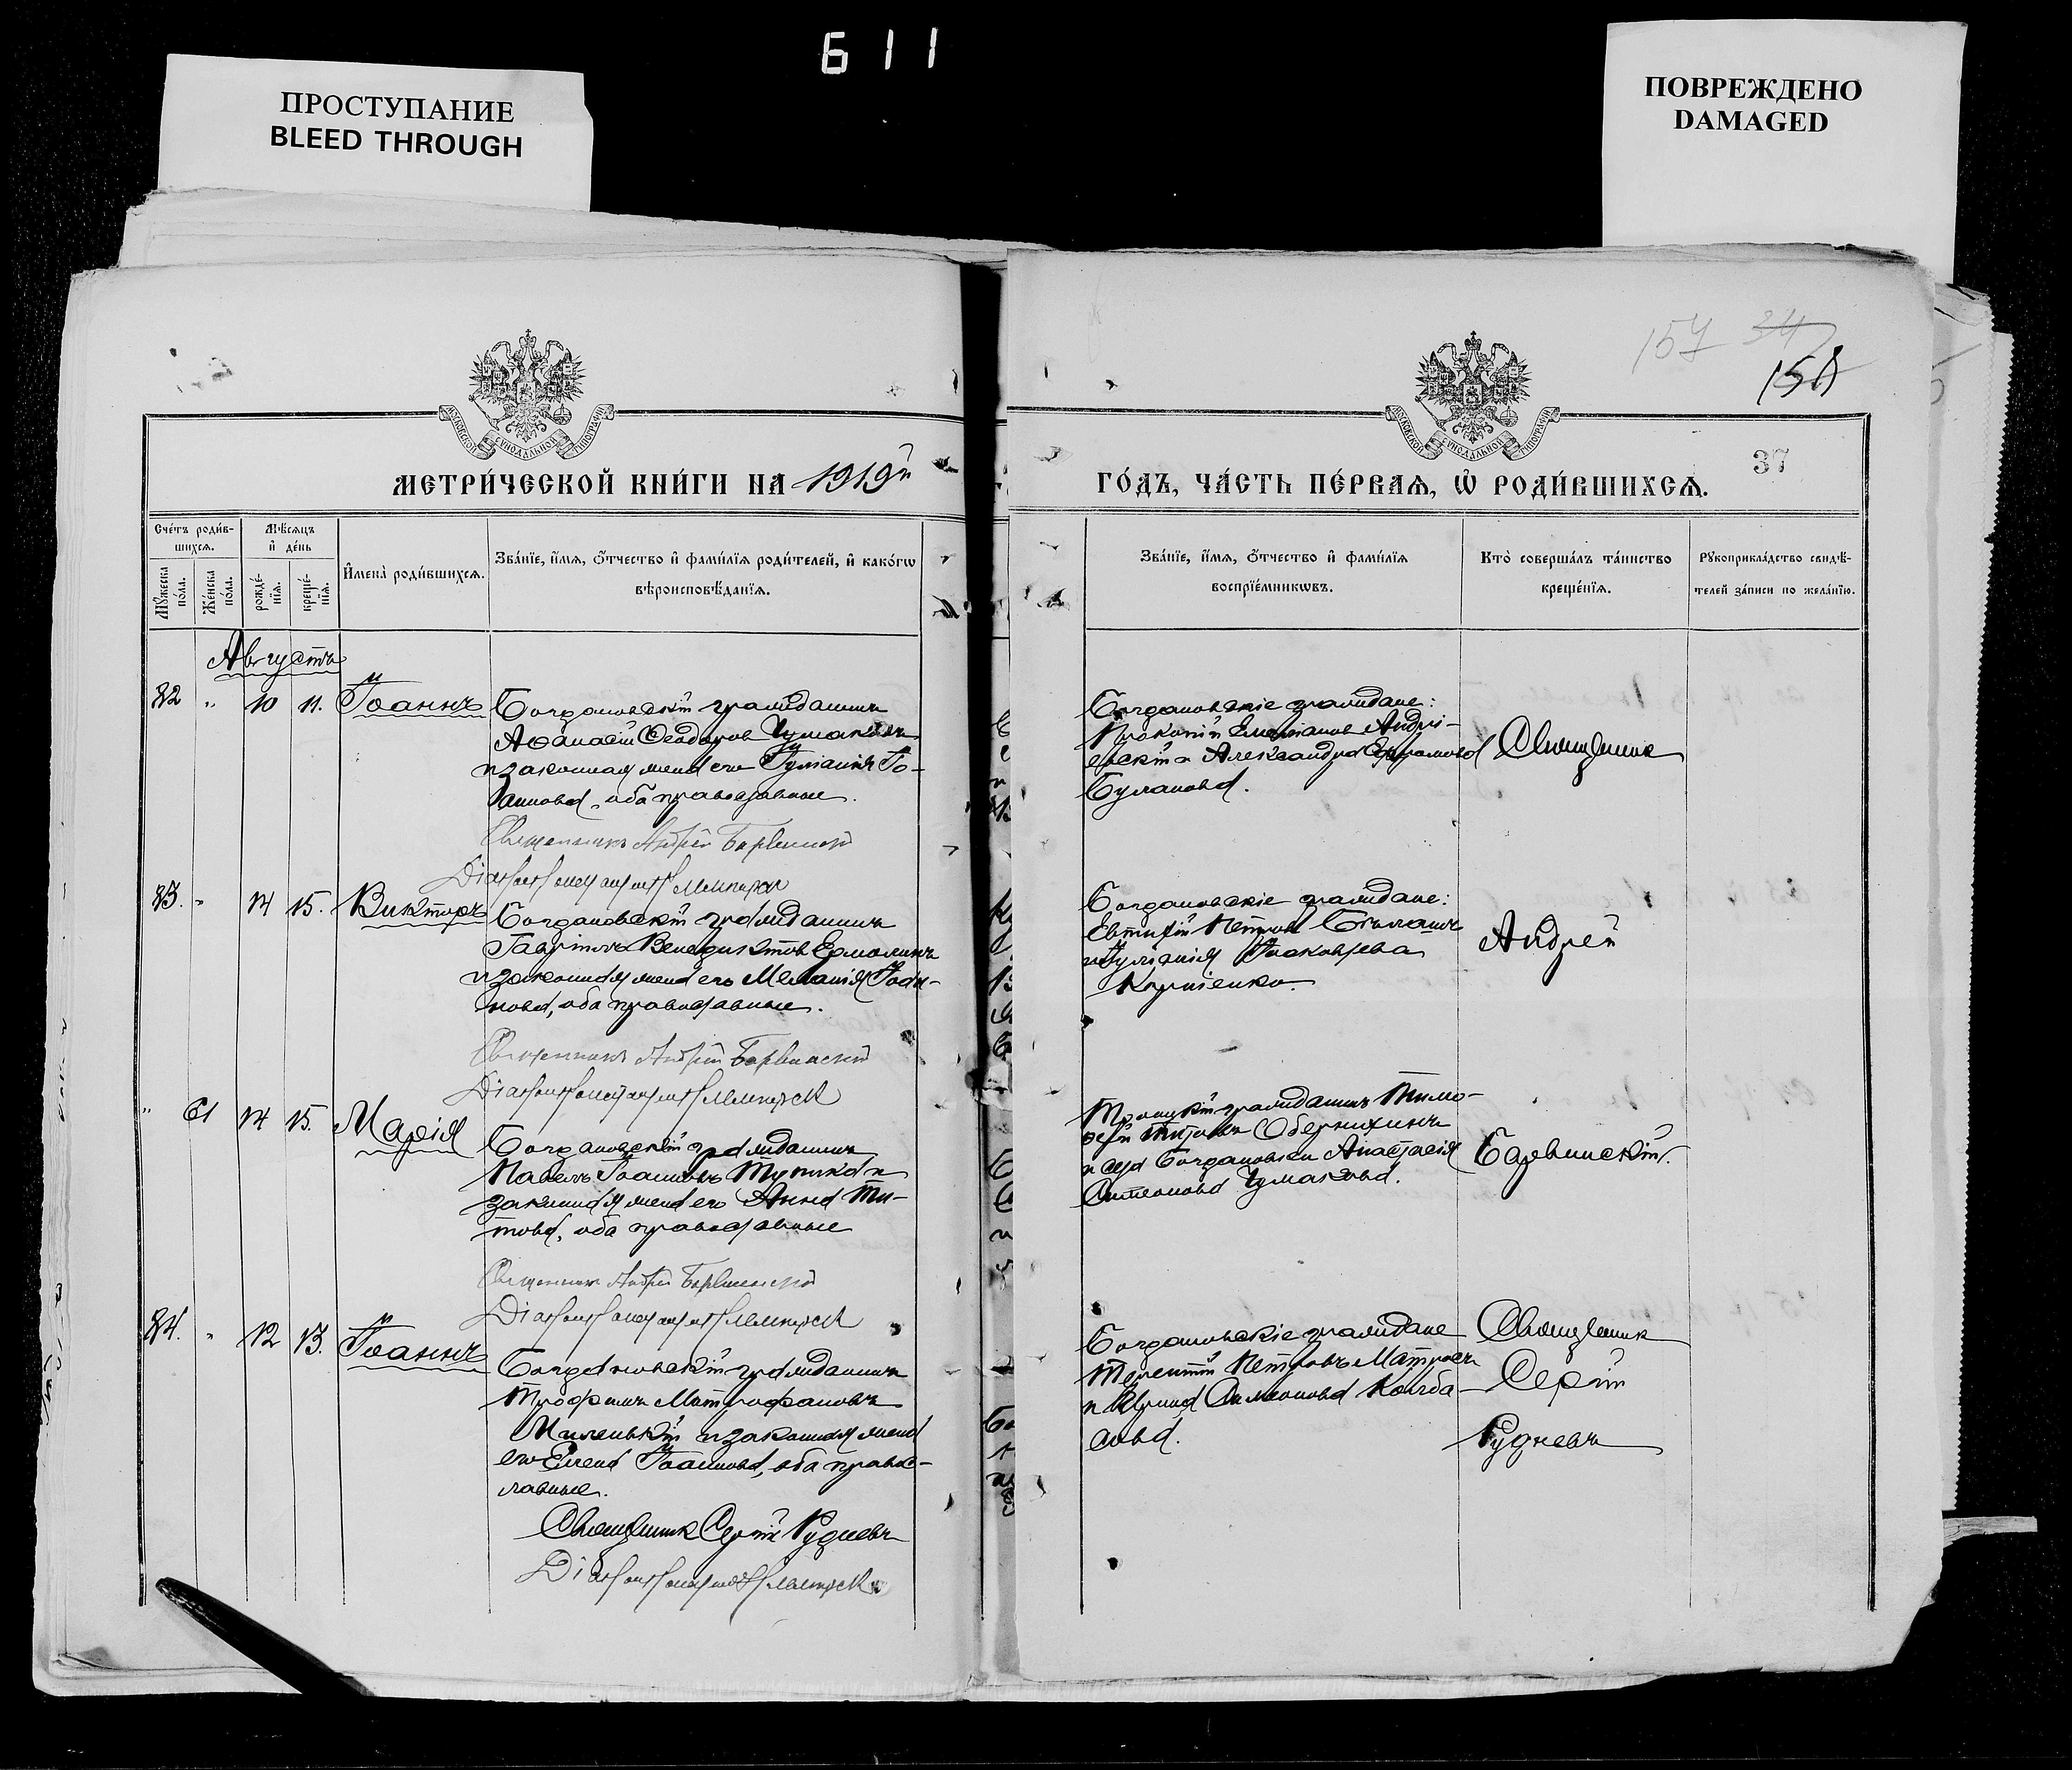 611
ПРОСТУПАНИЕ
BLEED THROUGH
ПОВРЕЖДЕНО
DAMAGED
157 34
37
МЕТРИ́ЧЕСКОЙ КНИ́ГИ НА 1919й
ГО́ДЪ, ЧА́СТЬ ПЕ́РВАѦ, Ѡ҆ РОДИ́ВШИХСѦ.
Сче́тъ роди́в-
шихсѧ.
Мꙋ́жеска по́ла.
Же́нска по́ла.
Мѣ́сѧцъ
и҆ де́нь
рожде́-
нїѧ.
креще́-
нїѧ.
И҆мена̀ роди́вшихсѧ.
Зва́нїе, и҆́мѧ, ѻ҆́тчество и҆ фами́лїѧ роди́телей, и҆ како́гѡ
вѣроисповѣ́данїѧ.
Зва́нїе, и҆́мѧ, ѻ҆́тчество и҆ фами́лїѧ
воспрїе́мникѡвъ.
Кто̀ соверша́лъ та́инство
креще́нїѧ.
Рꙋкоприкла́дство свидѣ́-
телей за́писи по жела́нїю.
Августъ
82 " 10 11. Іоаннъ
Богдановскій гражданинъ
Аѳанасій Ѳеодоров Чумаковъ
и законная жена его Іуліанія Іо-
аннова, оба православные.
Священникъ Андрей Барвинский
Богдановскіе граждане:
Прокопій Емельянов Андрі-
евскій и Александра Ефрамова
Буланова.
Священник
83. " 14 15. Викторъ
Богдановскій гражданинъ
Гавріилъ Венедиктов Ермолинъ
и законная жена его Меланія Іоан-
нова, оба православные.
Священникъ Андрей Барвинский
Богдановскіе граждане:
Евтихій Петров
и Іуліанія Іаковлева
Корніенко.
Андрей
" 61 14 15. Марія
Богдановскій гражданинъ
Павелъ Іоанновъ Тупика и
законная жена его Анна Ти-
това, оба православные
Священник Андрей Барвинский
Троицкій гражданинъ Тимо-
ѳей Титовъ Обернихинъ
и села Богдановки Анастасія
Симеонова Чумакова.
Барвинскій.
84. " 12 13. Іоаннъ
Богдановскій гражданинъ
Трофимъ Митрофановъ
и законная жена
его Елена Іоаннова, оба правос-
лавные.
Священник Сергій Рудневъ
Богдановскіе граждане
Терентій Петровъ Матросъ
и Ирина Симеонова Колба-
сова.
Священник
Сергій
Рудневъ